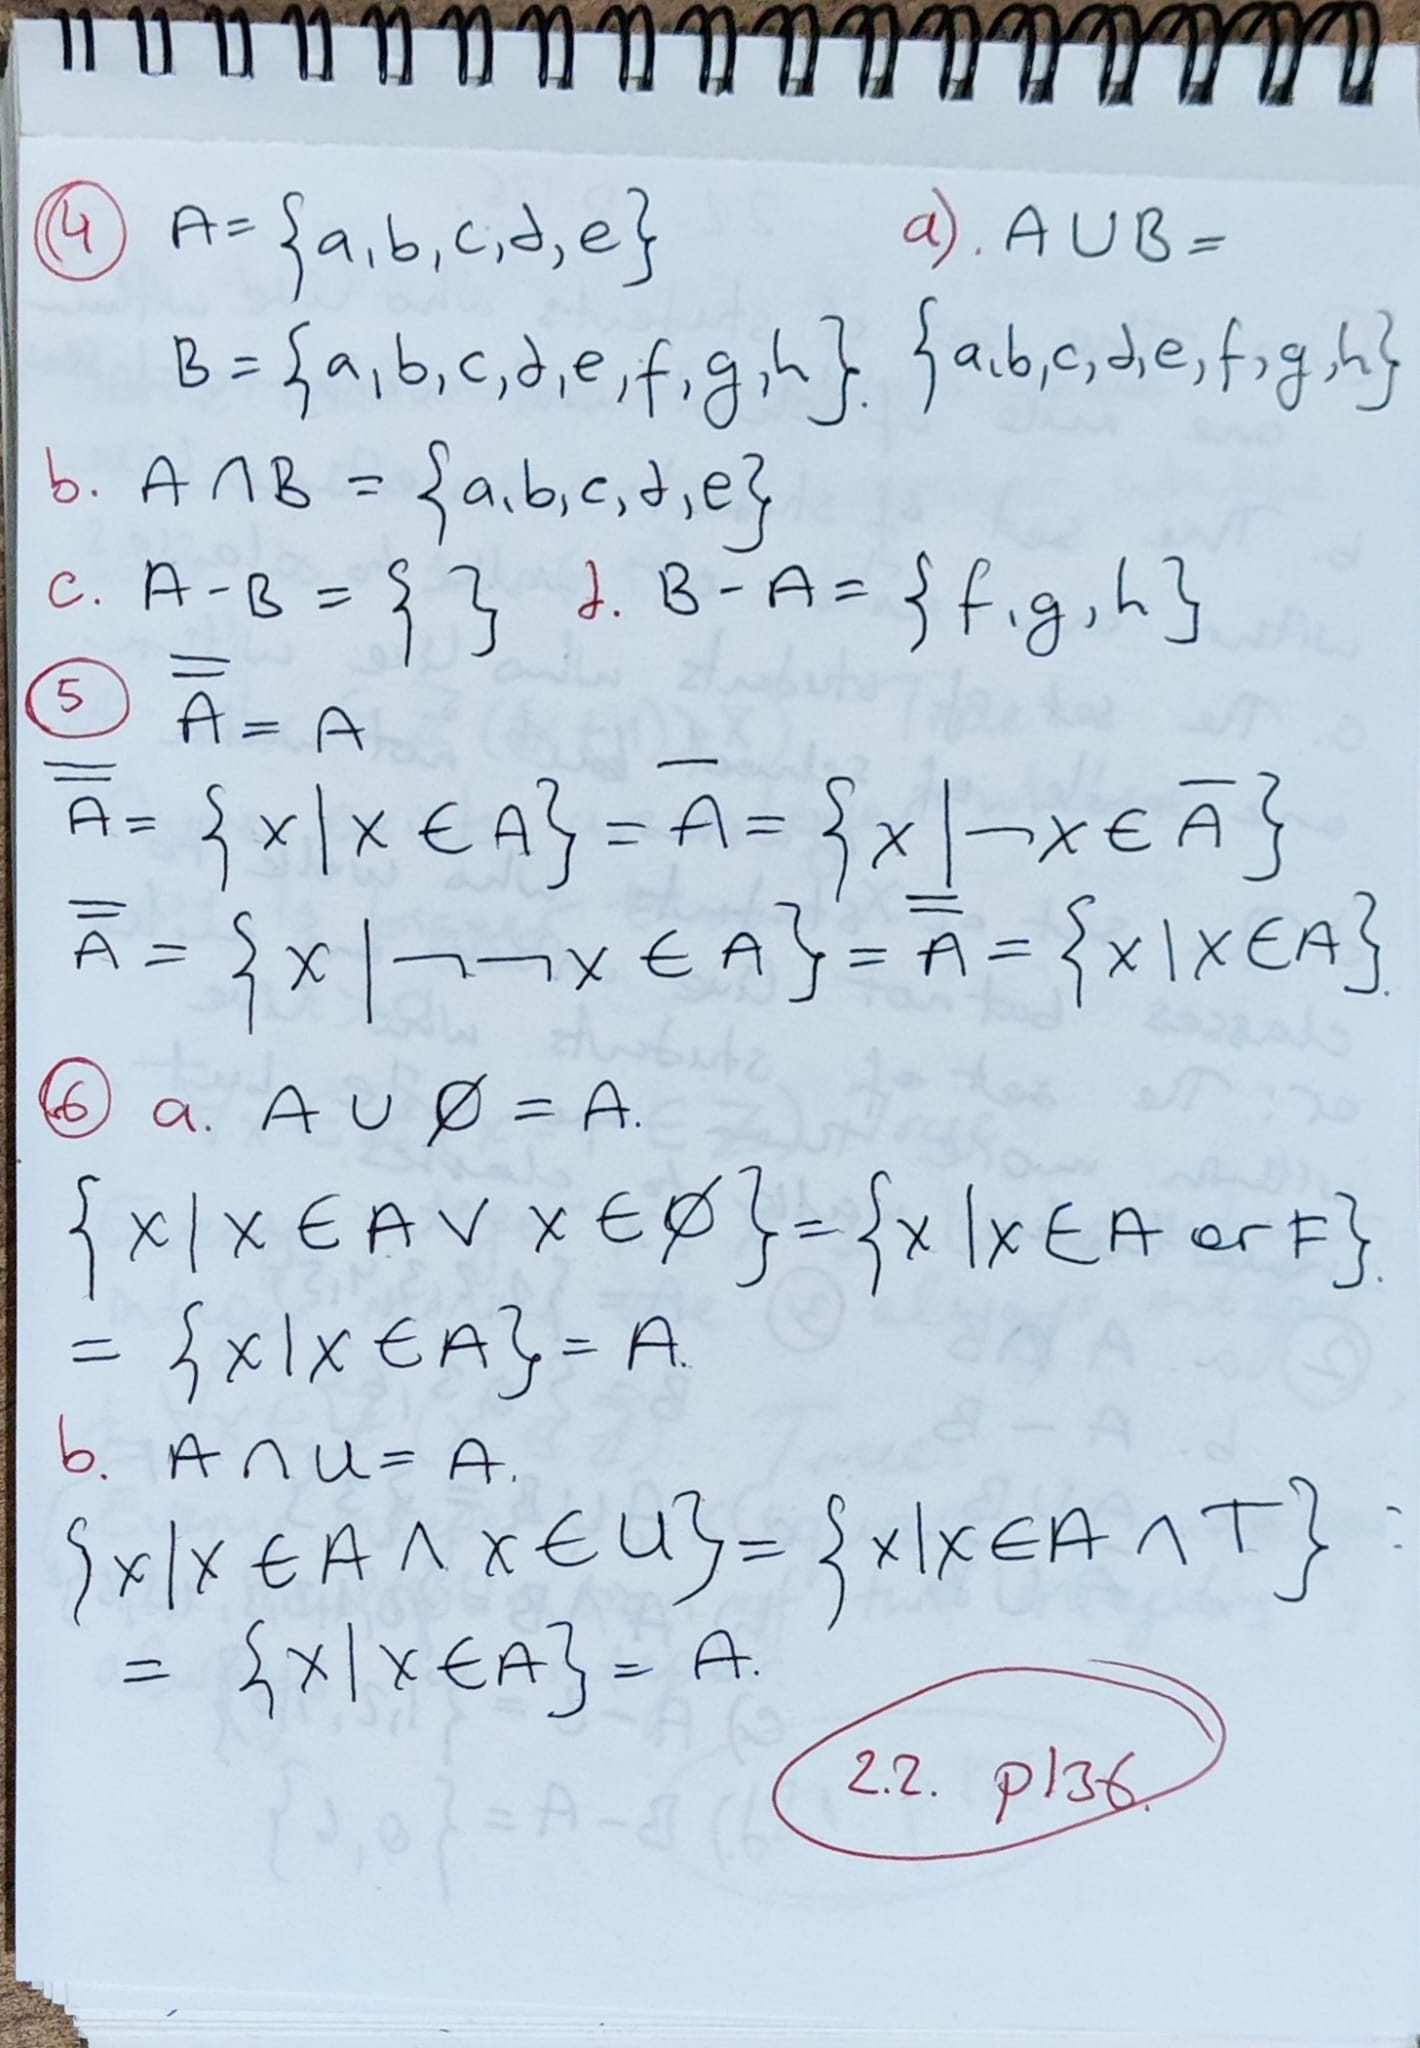 4 A = {a, b, c, d, e} a). A ∪ B =
B = {a, b, c, d, e, f, g, h}. {a, b, c, d, e, f, g, h}
b. A ∩ B = {a, b, c, d, e}
c. A - B = { } d. B - A = {f, g, h}
5 A̿ = A
A̿ = {x | x ∈ A} = A̅ = {x | ¬x ∈ A̅}
A̿ = {x | ¬¬x ∈ A} = A̿ = {x | x ∈ A}.
6 a. A ∪ Ø = A.
{x | x ∈ A ∨ x ∈ Ø} = {x | x ∈ A or F}.
= {x | x ∈ A} = A.
b. A ∩ U = A.
{x | x ∈ A ∧ x ∈ U} = {x | x ∈ A ∧ T} :
= {x | x ∈ A} = A.
2.2. p136.